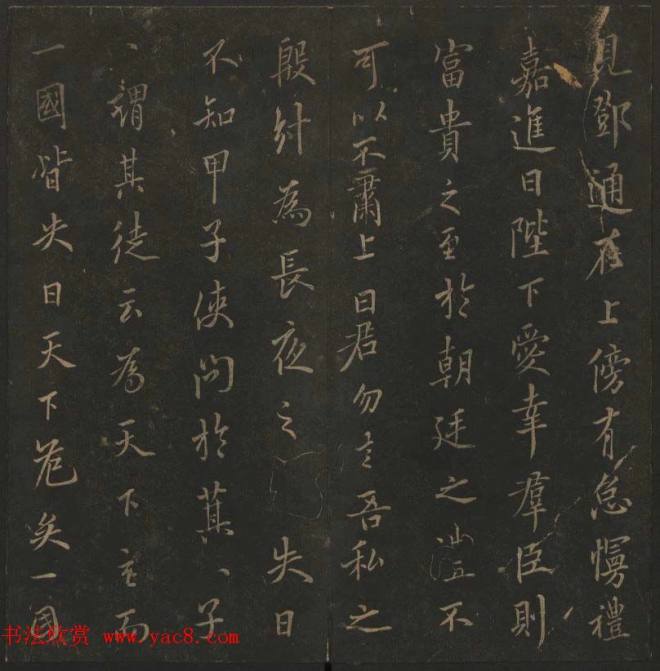 見鄧通在上傍有怠慢禮
嘉進曰陛下愛幸羣臣則
富貴之至於朝廷之不
可以不肅上曰君勿言吾私之
殷紂為長夜之失日
不知甲子使問於萁、子
、謂其徒云為天下主而
一國皆失日天下危矣一國
书法欣赏 www.yac8.com